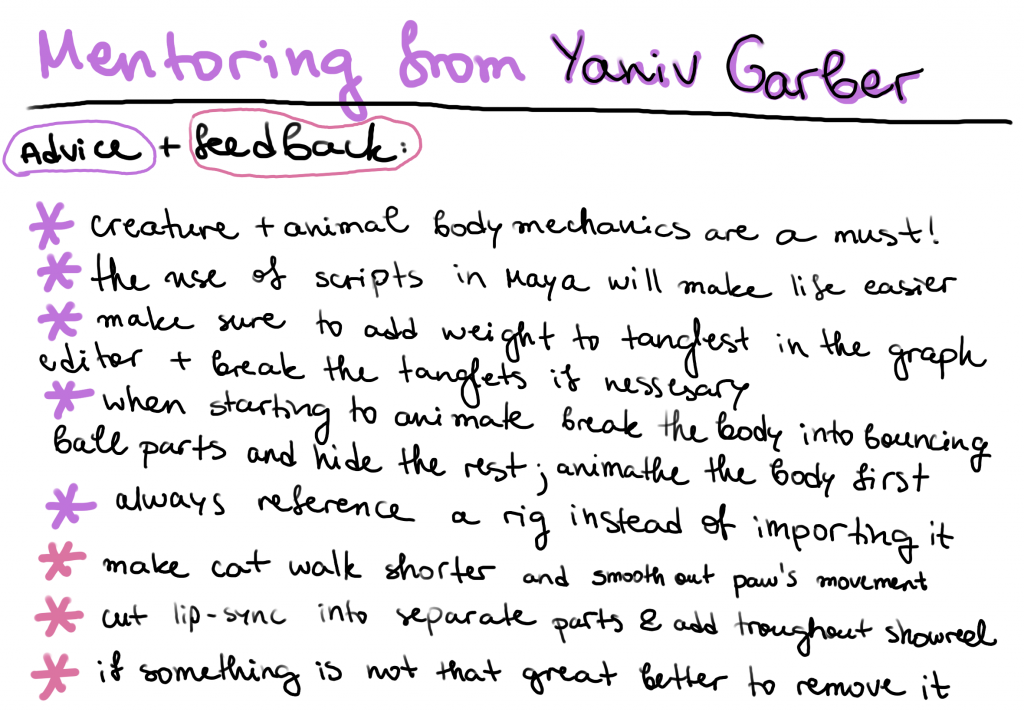 Mentoring from Yaniv Garber
Advice + feedback:
* creature + animal body mechanics are a must!
* the use of scripts in Maya will make life easier
* make sure to add weight to tanglest in the graph
editor + break the tanglets if nessesary
* when starting to animate break the body into bouncing
ball parts and hide the rest; animathe the body first
* always reference a rig instead of importing it
* make cat walk shorter and smooth out paw's movement
* cut lip-sync into separate parts & add troughout showreel
* if something is not that great better to remove it